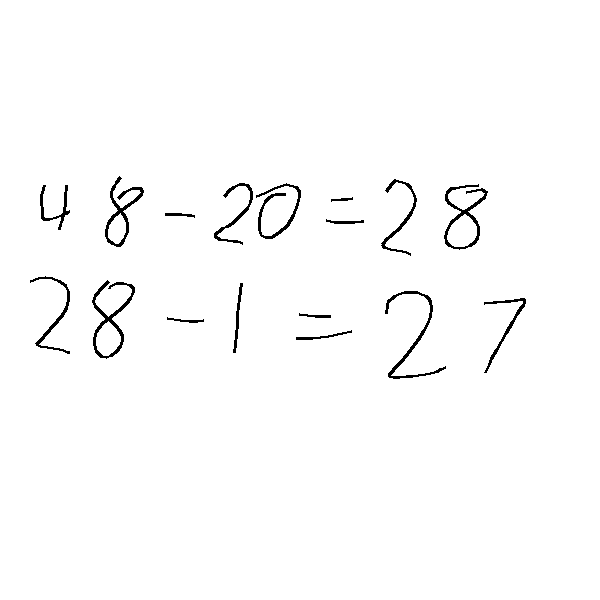 48-20=28
28-1=27